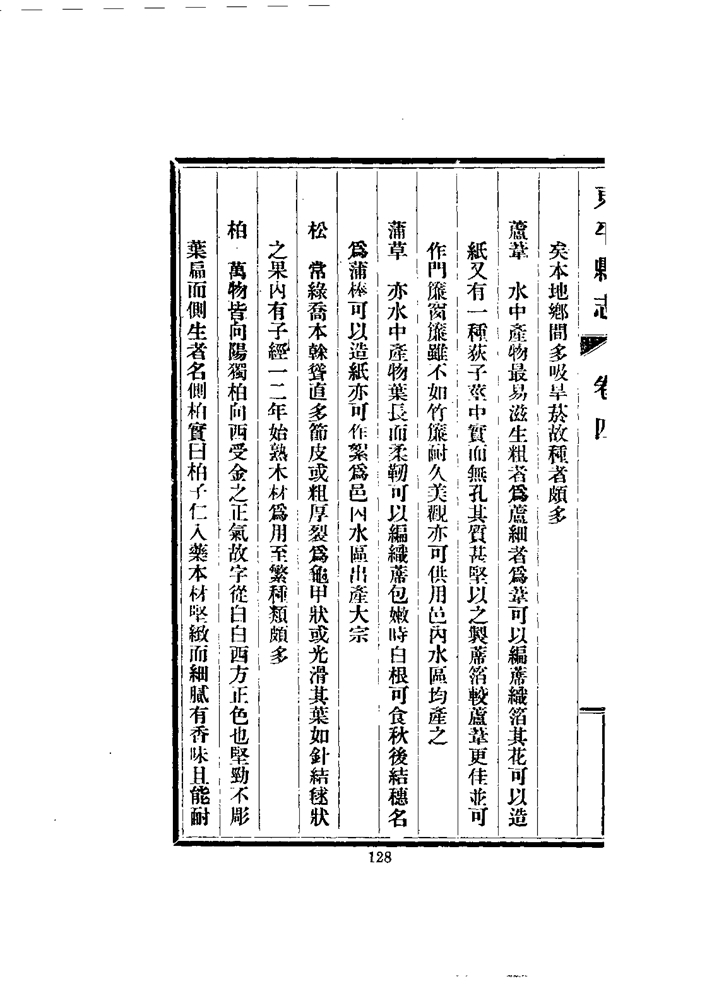 東平縣志 卷四
矣本地鄉間多吸旱菸故種者頗多
蘆葦 水中產物最易滋生粗者爲蘆細者爲葦可以編蓆織箔其花可以造
紙又有一種荻子莖中實而無孔其質甚堅以之製蓆箔較蘆葦更佳並可
作門簾窗簾雖不如竹簾耐久美觀亦可供用邑內水區均產之
蒲草 亦水中產物葉長而柔韌可以編織蓆包嫩時白根可食秋後結穗名
爲蒲棒可以造紙亦可作絮爲邑內水區出產大宗
松 常綠喬本榦聳直多節皮或粗厚裂爲龜甲狀或光滑其葉如針結毬狀
之果內有子經一二年始熟木材爲用至繁種類頗多
柏 萬物皆向陽獨柏向西受金之正氣故字從白白西方正色也堅勁不彫
葉扁而側生者名側柏實曰柏子仁入藥本材堅緻而細膩有香味且能耐
128